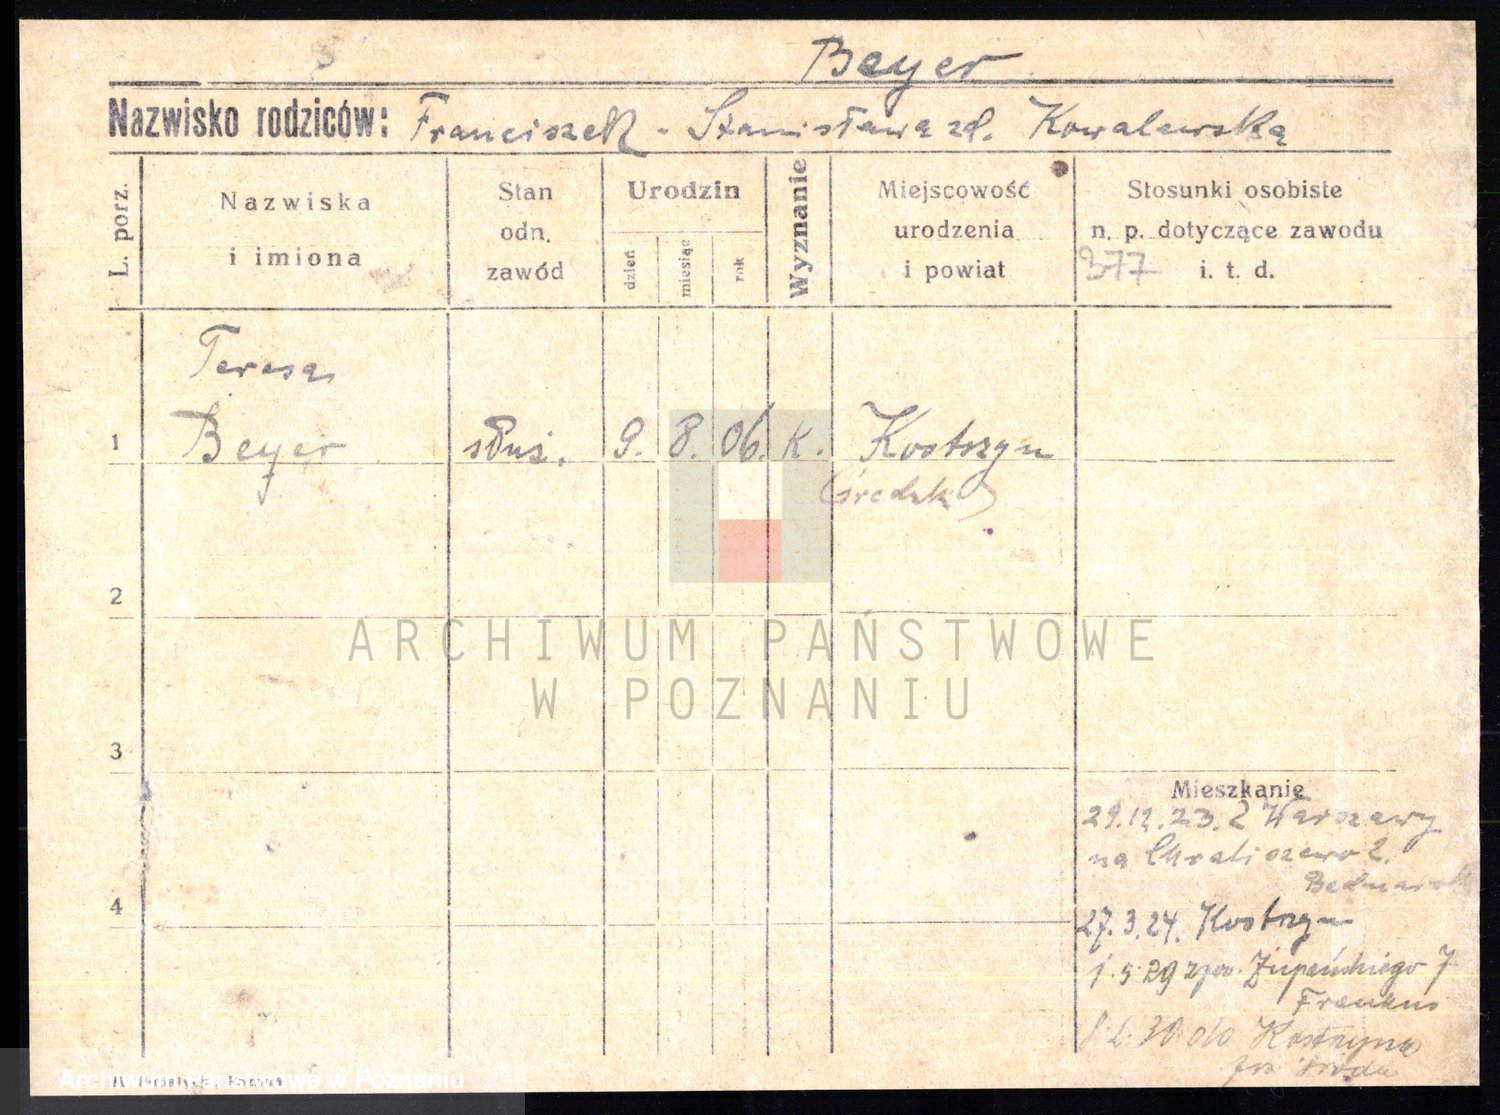 Beyer
Nazwisko rodziców: Franciszek - Stanisława zd. Kowalewska
L. porz.
Nazwiska
i imiona
Stan
odn.
zawód
Urodzin
dzień
miesiąc
rok
Wyznanie
Miejscowość
urodzenia
i powiat
Stosunki osobiste
n. p. dotyczące zawodu
i. t. d.
377
Teresa
1 Beyer służ. 9. 8. 06. k. Kostrzyn
(Średzki)
2
ARCHIWUM PAŃSTWOWE
W POZNANIU
3
Mieszkanie
29.12.23. Z Warszawy
na Chwaliszewo 2.
4
27.3.24. Kostrzyn
1.5.29 Żupańskiego 7
30 do Kostrzyna
Archiwum Państwowe w Poznaniu